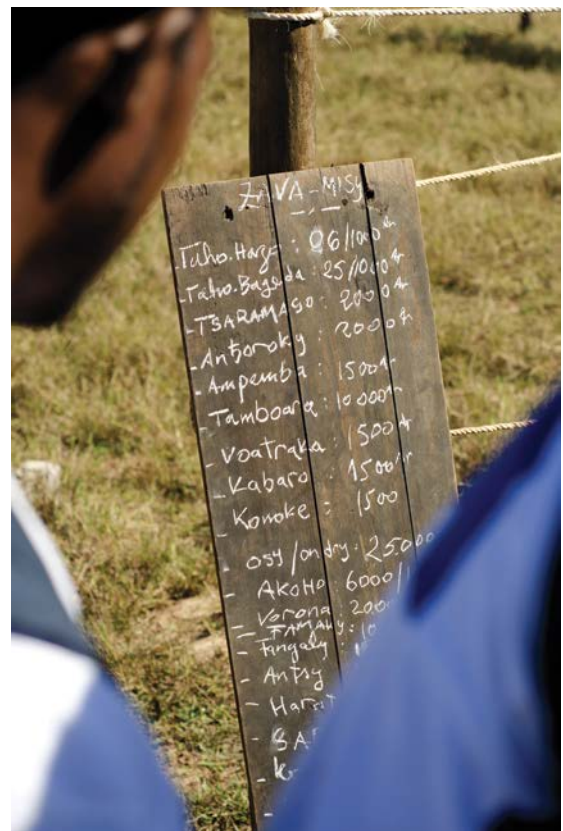 ZAVA-MISY
- Taho.Hazo : 06/1000 Ar
- Taho.Bageda : 25/1000 Ar
- TSARAMASO : 2000 Ar
- Antsoroky : 2000 Ar
- Ampemba : 1500 Ar
- Tamboara : 10 000 Ar
- Voatraka : 1500 Ar
- Kabaro : 1500 Ar
- Konoke : 1500
- osy/ondry : 25.000
- AKOHO 6000/
- Vorona 2000
- FAMAKY :
- Fangaly :
- Antsy
-
-
-